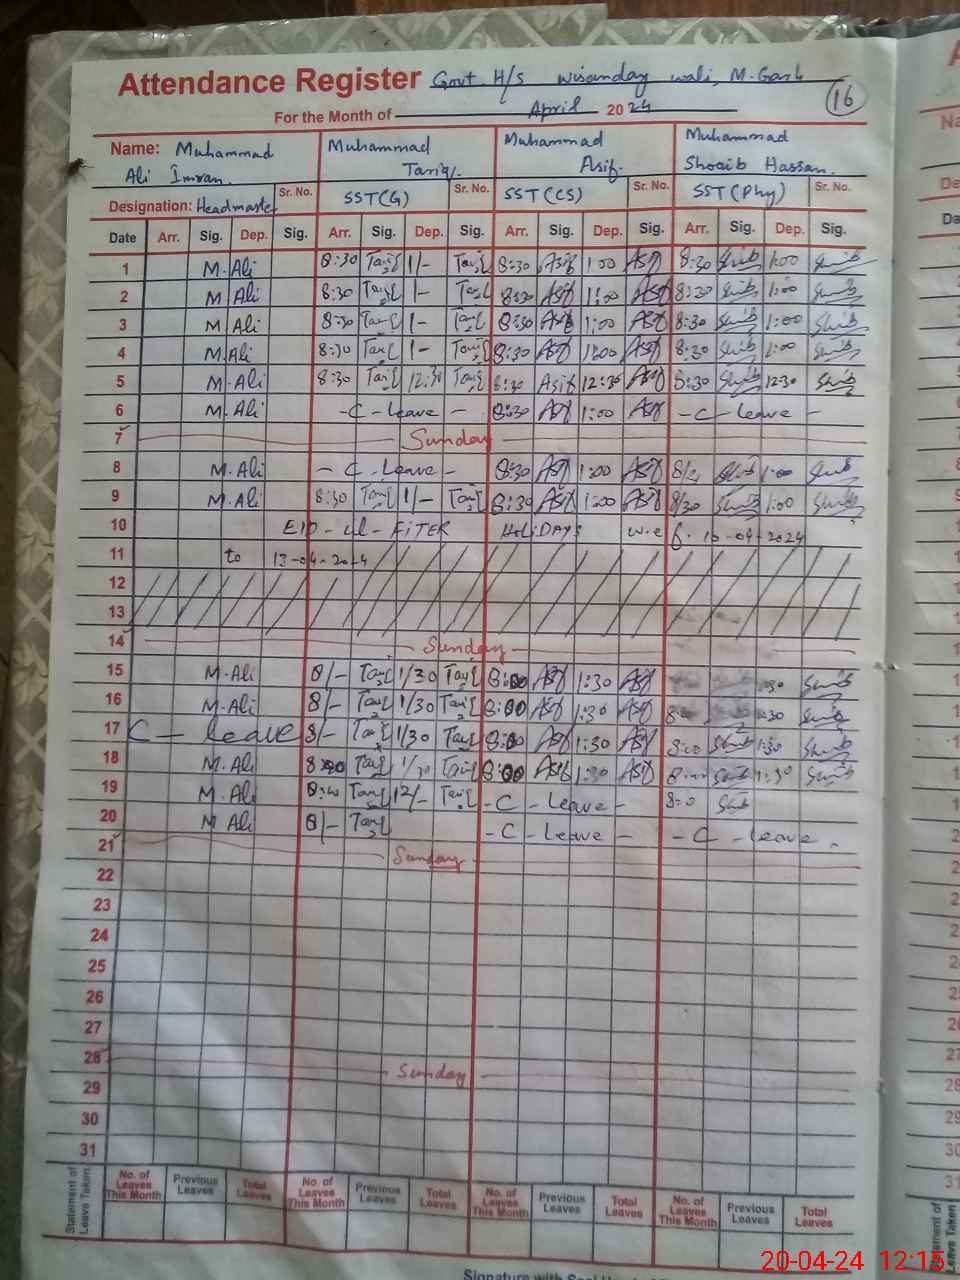 Attendance Register Govt. H/S Wisanday wali, M. Garh
For the Month of April 2024 16
Name: Muhammad Ali Imran. Muhammad Tariq. Muhammad Asif. Muhammad Shoaib Hassan.
Designation: Headmaster Sr. No. SST(G) Sr. No. SST(CS) Sr. No. SST(Phy) Sr. No.
Date Arr. Sig. Dep. Sig. Arr. Sig. Dep. Sig. Arr. Sig. Dep. Sig. Arr. Sig. Dep. Sig.
1 M.Ali 8:30 Tariq 1/- Tariq 8:30 Asif 1:00 Asif 8:30 Shoib 1:00 Shoib
2 M.Ali 8:30 Tariq 1- Tariq 8:30 Asif 1:00 Asif 8:30 Shoib 1:00 Shoib
3 M.Ali 8:30 Tariq 1- Tariq 8:30 Asif 1:00 Asif 8:30 Shoib 1:00 Shoib
4 M.Ali 8:30 Tariq 1- Tariq 8:30 Asif 1:00 Asif 8:30 Shoib 1:00 Shoib
5 M.Ali 8:30 Tariq 12:30 Tariq 8:30 Asif 12:30 Asif 8:30 Shoib 12:30 Shoib
6 M.Ali - C - leave - 8:30 Asif 1:00 Asif - C - leave -
7 Sunday
8 M.Ali - C - Leave - 8:30 Asif 1:00 Asif Shoib 1:00 Shoib
9 M.Ali 8:30 Tariq 1/- Tariq 8:30 Asif 1:00 Asif 8/30 Shoib 1:00 Shoib
10 EID-ul-FITER HOLIDAYS w.e.f. 10-04-2024
11 to 13-04-2024
12
13
14 Sunday
15 M.Ali 8/- Tariq 1/30 Tariq 8:00 Asif 1:30 Asif Shoib
16 M.Ali 8/- Tariq 1/30 Tariq 8:00 Asif 1:30 Asif Shoib
17 C - leave 8/- Tariq 1/30 Tariq 8:00 Asif 1:30 Asif 8:00 Shoib 1:30 Shoib
18 M.Ali Tariq 1/30 Tariq 8:00 Asif 1:30 Asif 8:00 Shoib 1:30 Shoib
19 M.Ali Tariq 12/- Tariq - C - Leave - Shoib
20 M.Ali 8/- Tariq - C - Leave - - C - leave.
21 Sunday
22
23
24
25
26
27
28 Sunday
29
30
31
Statement of Leave Taken No. of Leaves This Month Previous Leaves Total Leaves No. of Leaves This Month Previous Leaves Total Leaves No. of Leaves This Month Previous Leaves Total Leaves No. of Leaves This Month Previous Leaves Total Leaves
20-04-24 12:15